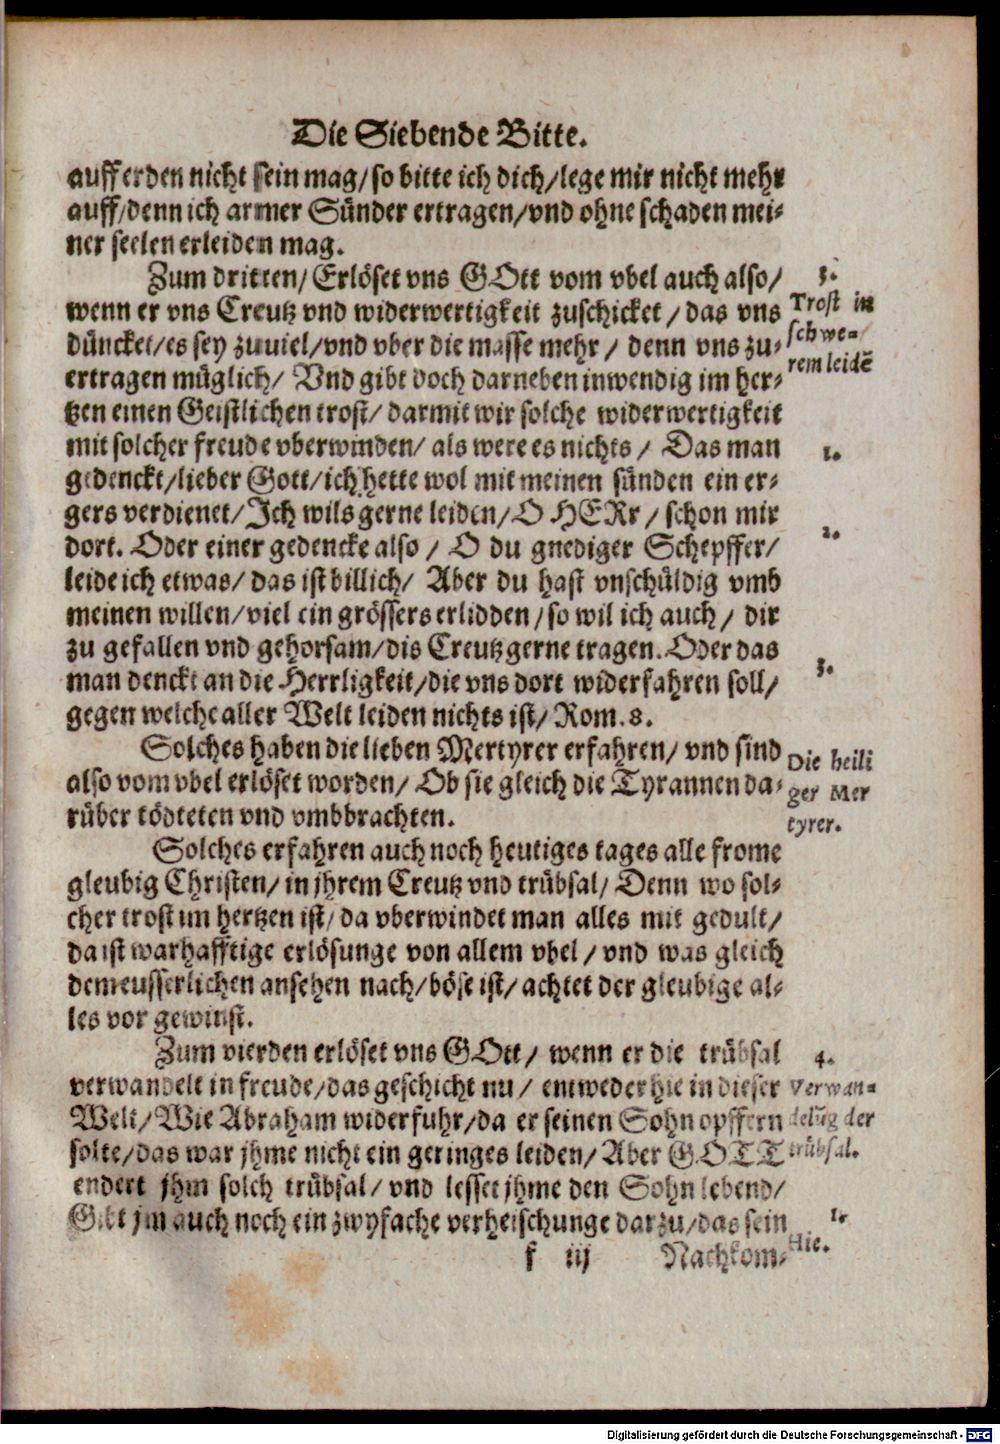 Die Siebende Bitte.
auff erden nicht sein mag/so bitte ich dich/lege mir nicht mehr
auff/denn ich armer Sünder ertragen/vnd ohne schaden mei-
ner seelen erleiden mag.
Zum dritten/Erlöset vns GOtt vom vbel auch also/
wenn er vns Creutz vnd widerwertigkeit zuschicket/das vns
düncket/es sey zuuiel/vnd vber die masse mehr/denn vns zu-
ertragen müglich/Vnd gibt doch darneben inwendig im her-
tzen einen Geistlichen trost/darmit wir solche widerwertigkeit
mit solcher freude vberwinden/als were es nichts/Das man
gedenckt/lieber Gott/ich hette wol mit meinen sünden ein er-
gers verdienet/Ich wils gerne leiden/O HERr/schon mir
dort. Oder einer gedencke also/O du gnediger Schepffer/
leide ich etwas/das ist billich/Aber du hast vnschüldig vmb
meinen willen/viel ein grössers erlidden/so wil ich auch/dir
zu gefallen vnd gehorsam/dis Creutz gerne tragen. Oder das
man denckt an die Herrligkeit/die vns dort widerfahren soll/
gegen welche aller Welt leiden nichts ist/Rom. 8.
Solches haben die lieben Mertyrer erfahren/vnd sind
also vom vbel erlöset worden/Ob sie gleich die Tyrannen da-
rüber tödteten vnd vmbbrachten.
Solches erfahren auch noch heutiges tages alle frome
gleubig Christen/in jhrem Creutz vnd trübsal/Denn wo sol-
cher trost im hertzen ist/da vberwindet man alles mit gedult/
da ist warhafftige erlösunge von allem vbel/vnd was gleich
dem eusserlichen ansehen nach/böse ist/achtet der gleubige al-
les vor gewinst.
Zum vierden erlöset vns GOtt/wenn er die trübsal
verwandelt in freude/das geschicht nu/entweder hie in dieser
Welt/Wie Abraham widerfuhr/da er seinen Sohn opffern
solte/das war jhme nicht ein geringes leiden/Aber GOTT
endert jhm solch trübsal/vnd lesset jhme den Sohn lebend/
Gibt jm auch noch ein zwyfache verheischunge darzu/das sein
f iij Nachkom-
3.
Trost in
schwe-
rem leidē
1.
2.
3.
Die heili
ger Mer
tyrer.
4.
Verwan-
delūg der
trübsal.
1.
Hie.
Digitalisierung gefördert durch die Deutsche Forschungsgemeinschaft - DFG